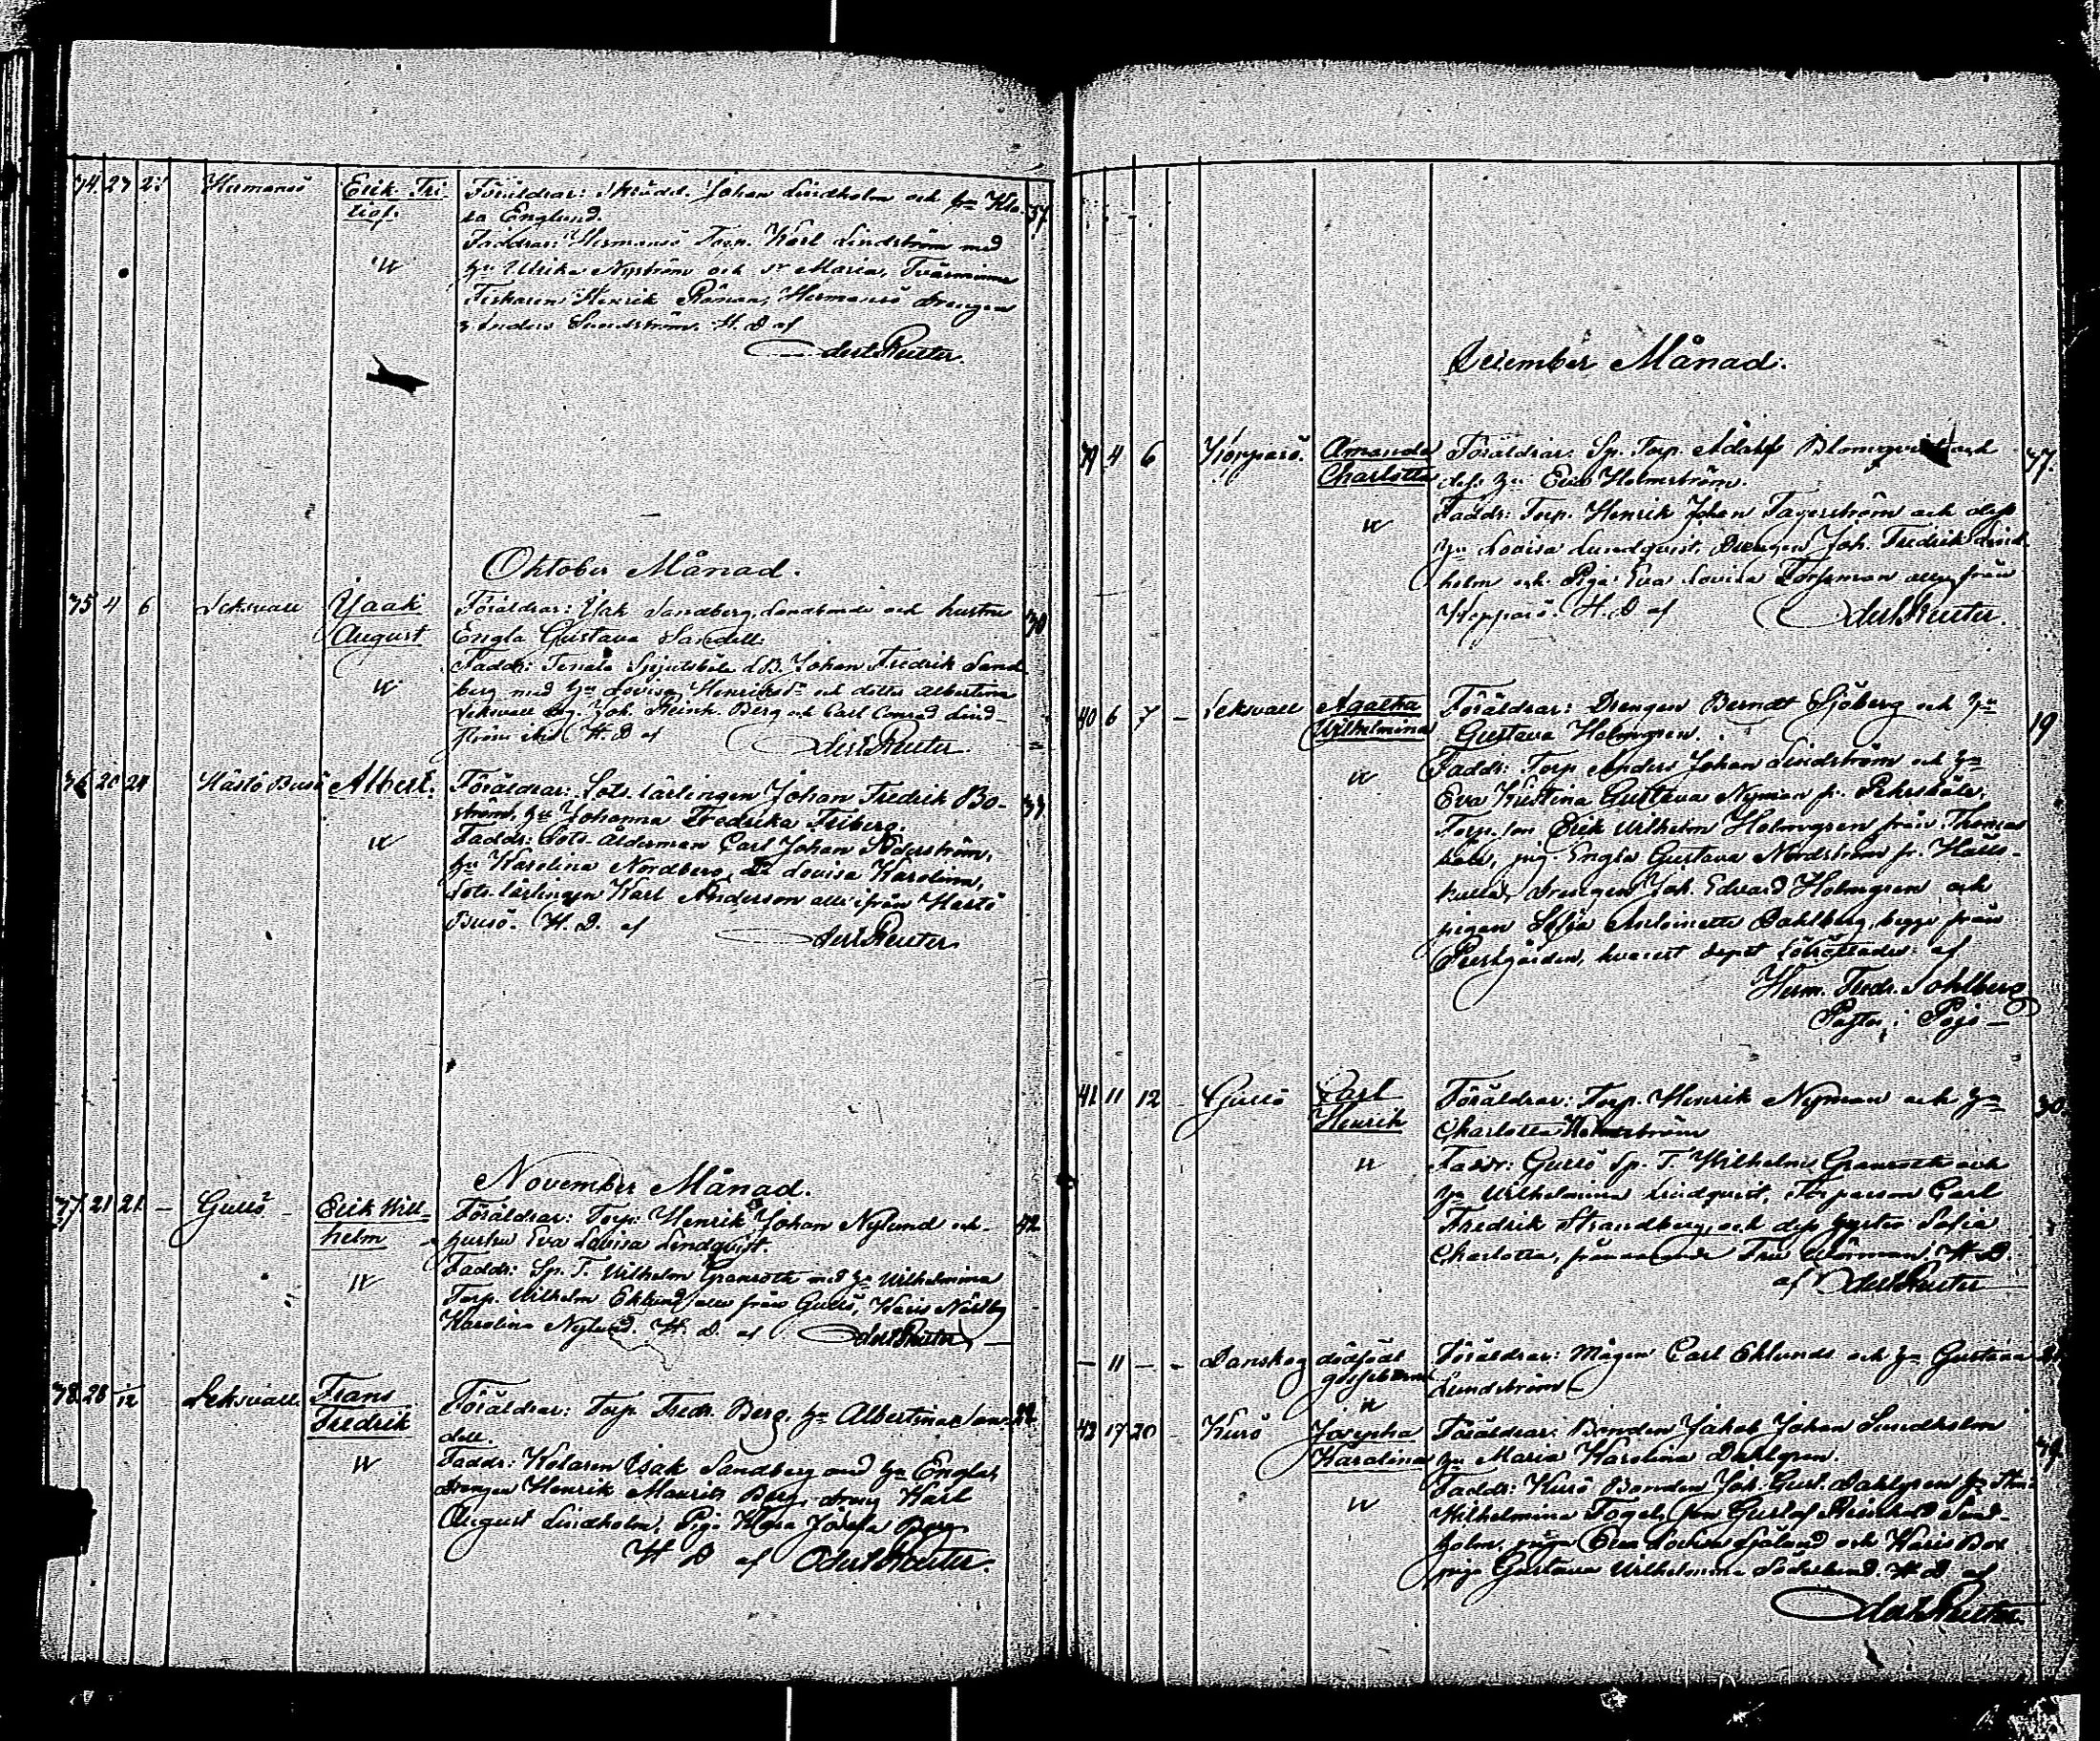 34. 27 28 Hermansö Erik Fri- Föräldrar: Skrädd. Johan Lindholm och hu Kla- 37
tiof. ra Englund.
Faddrar: Hermansö Torp. Karl Lindström med
hu Ulrika Nyström och Maria, Tvärminne
Henrik Hermansö drengen
Anders Sundström. H. D af
Reuter.
Oktober Månad.
35 4 6 Leksvall August Föräldrar: Sandberg, Landbonde och hustru 30
Engla Gustava Sandell.
Faddr: Tenala LB. Johan Fredrik Sand-
berg med hu Lovisa och dotter Albertina
Leksvall Joh. Reinh. Berg och Carl Conrad Lind-
ström H. D af
Reuter.
36 20 24 Hästö Busö Albert. Föräldrar: Lots-lärlingen Johan Fredrik Bo- 33
ström, hu Johanna Fredrika Friberg.
Faddr: Lots-ålderman Carl Johan Söderström,
hu Karolina Nordberg, Lovisa Karolina,
Lots-lärlingen Karl Anderson alla ifrån Hästö
Busö. H. D. af
Reuter
November Månad.
37 21 21 – Gullö – Erik Wil- Föräldrar: Torp. Henrik Johan Nylund och 42
helm hustru Eva Lovisa Lindqvist.
Faddr: Sp. T. Wilhelm Granroth med hu Wilhelmina
Torp. Wilhelm Eklund alla från Gullö, Karis
Karolina Nylund. H. D. af Reuter
38 28 Leksvall. Frans Föräldrar: Torp. Fredr. Berg, hu Albertina San-
Fredrik dell.
Faddr: Kolaren Isak Sandberg med hu Engla,
drengen Henrik Maurits Berg, dreng Karl
August Lindholm, Piga Klara Josefa Berg
H D af Reuter.
December Månad.
39 4 6 Kopparö. Amanda Föräldrar: Sp. Torp. Adolf Blomqvist och 37.
Charlotta dess hu Eva Holmström.
Faddr: Torp. Henrik Johan Fagerström och dess
hu Lovisa Lundqvist, Drengen Joh. Fredrik Lind-
holm och Piga Eva Lovisa Forsman alla från
Kopparö. H. D af Reuter.
40 6 7 – Leksvall Agatha Föräldrar: Drengen Berndt Sjöberg och hu 19
Wilhelmina Gustava Holmgren.
Faddr: Torp Anders Johan Lindström och hu
Eva Kristina Gustava Nyman fr.
Torp. son Erik Wilhelm Holmgren från Thomas
pig. Engla Gustava Nordström fr.
kulla, drengen Joh. Edvard Holmgren och
pigan Sofia Antoinette Dahlberg, begge från
Prestgården, hvarest dopet förrättades af
Herm. Fredr. Sohlberg
Pastor i Pojo –
41 11 12 – Gullö Carl Föräldrar: Torp. Henrik Nyman och hu 30
Henrik Charlotta Holmström
Faddr: Gullö Sp. T. Wilhelm Granroth och
hu Wilhelmina Lindqvist, Carl
Fredrik Strandberg och dess syster Sofia
Charlotta, H. D.
af Reuter
– 11 – – Danskog dödfödt Föräldrar: Mågen Carl Eklund och hu Gustava
gossebarn Lundström
43 17 20 Kurö Josepha Föräldrar: Bonden Jakob Johan Lindholm 39
Karolina hu Maria Karolina Dahlgren.
Faddr: Kurö Bonden Joh. Gust. Dahlgren
Wilhelmina Fogel, son Gustaf Reinhold Lind-
holm, piga Eva Lovisa Sjölund och Karis
piga Gustava Wilhelmina Söderlund. H. D. af
Reuter.